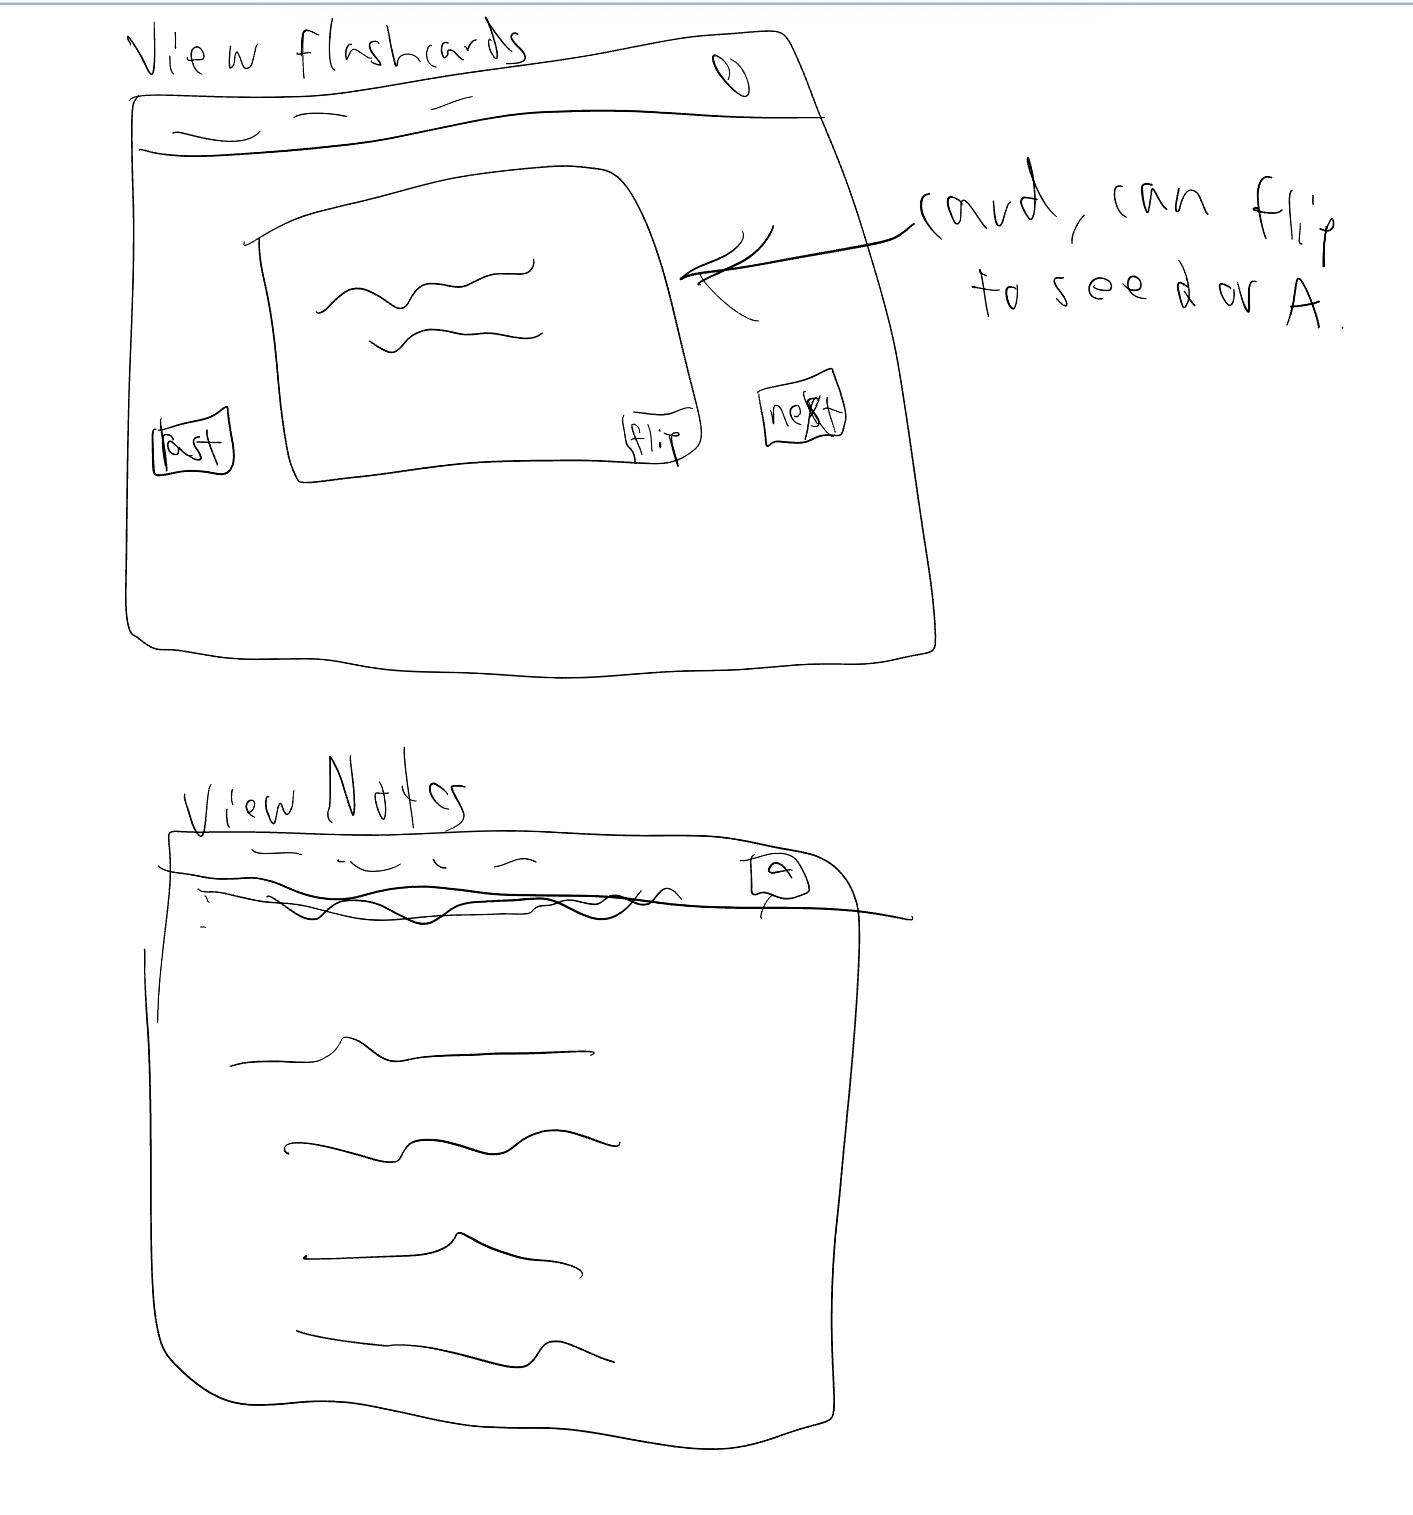 View flashcards
card, can flip
to see Q or A.
last
flip
next
View Notes